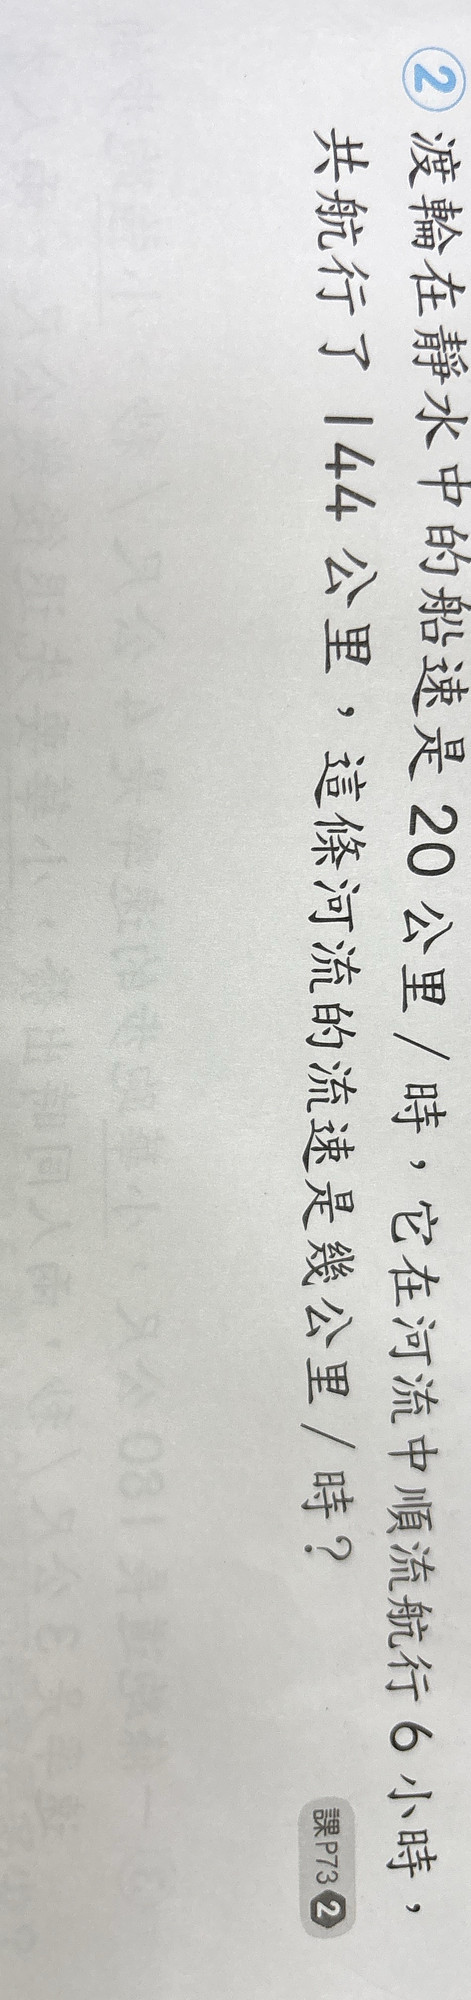 ② 渡輪在靜水中的船速是20公里/時，它在河流中順流航行6小時，
共航行了144公里，這條河流的流速是幾公里/時？
課P73 ❷